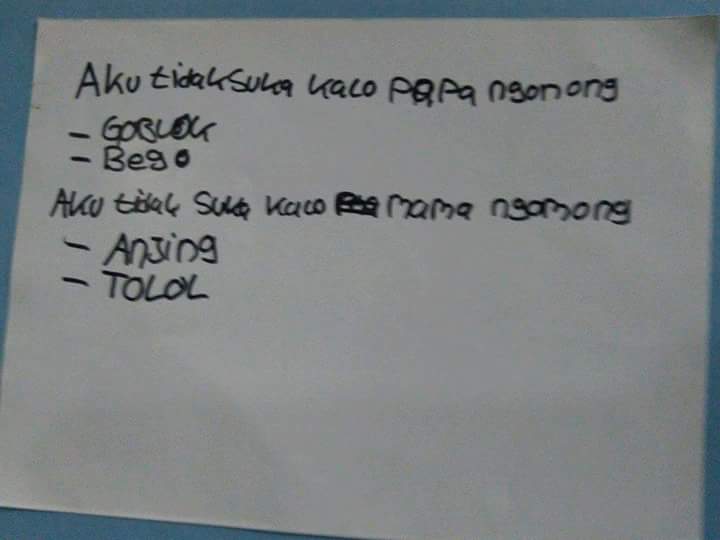 Aku tidak suka kalo papa ngomong
- GOBLOK
- Bego
Aku tidak suka kalo mama ngomong
- Anjing
- TOLOL